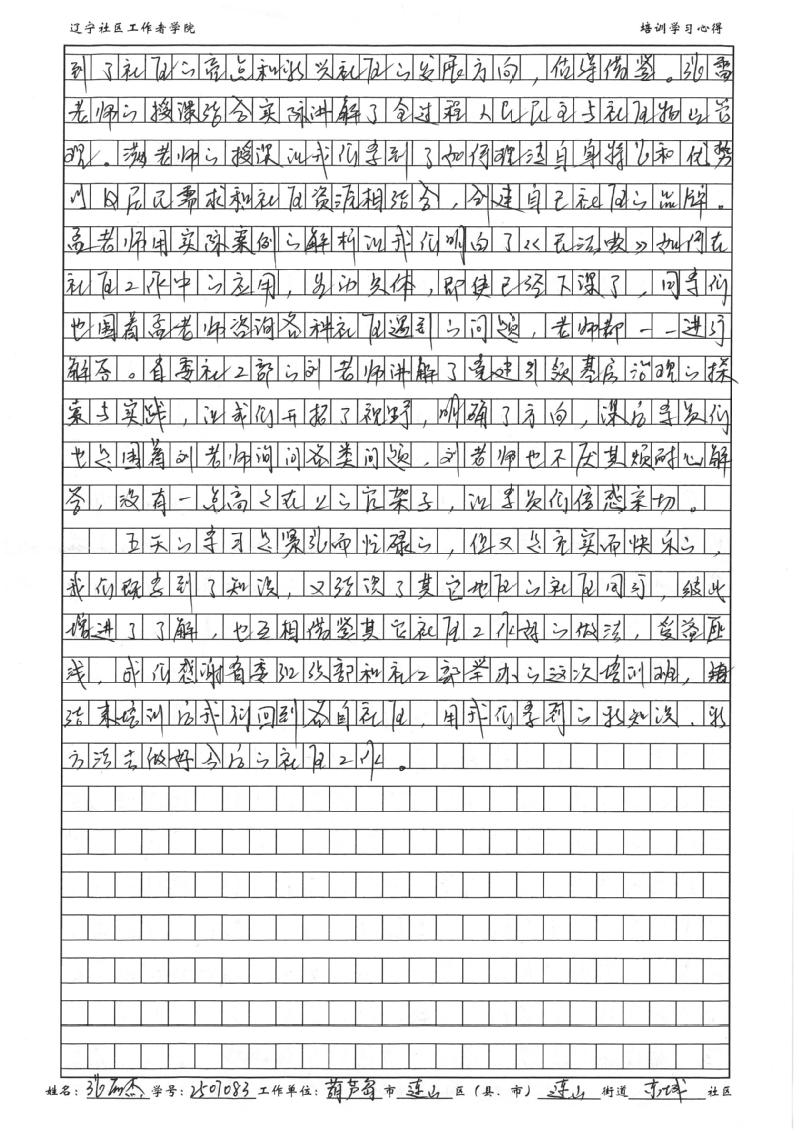 辽宁社区工作者学院 培训学习心得
到了社区的亮点和新兴社区的发展方向，值得借鉴。张雷
老师的授课结合实际讲解了全过程人民民主与社区物业管
理。 老师的授课让我们学到了如何理清自身特色和优势
以及居民需求和社区资源相结合，创建自己社区的品牌。
孟老师用实际案例的解析让我们明白了《民法典》如何在
社区工作中的应用，生动具体，即使已经下课了，同学们
也围着孟老师咨询各种社区遇到的问题，老师都一一进行
解答。省委社工部的刘老师讲解了党建引领基层治理的探
索与实践，让我们开拓了视野，明确了方向，课后学员们
也是围着刘老师询问各类问题，刘老师也不厌其烦耐心解
答，没有一点高高在上的官架子，让学员们倍感亲切。
五天的学习是紧张而忙碌的，但又是充实而快乐的，
我们既学到了知识，又结识了其它地区的社区同行，彼此
增进了了解，也互相借鉴其它社区工作好的做法，受益匪
浅，我们感谢省委组织部和社工部举办的这次培训班，
结束培训后我们回到各自社区，用我们学到的新知识、新
方法去做好今后的社区工作。
姓名：张 杰 学号：2507083 工作单位：葫芦岛 市 连山 区（县、市） 连山 街道 东城 社区